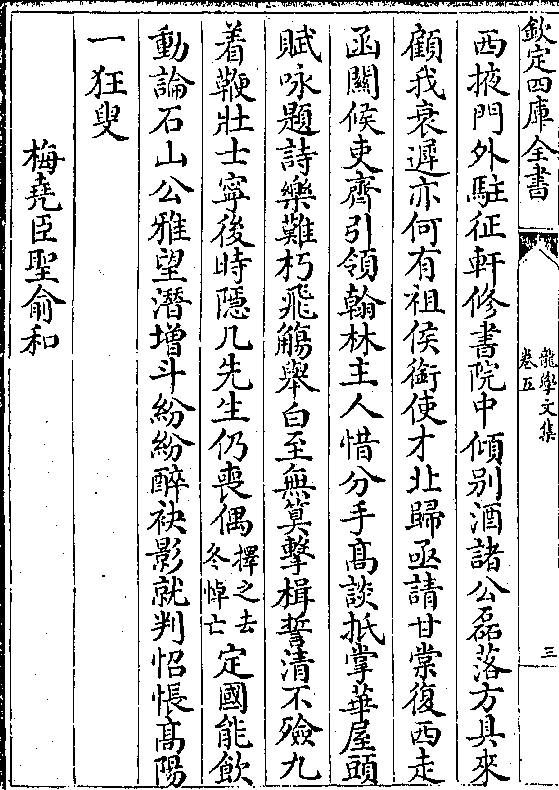 欽定四庫全書
龍學文集
卷五
三
西掖門外駐征軒修書院中傾别酒諸公磊落方具來
顧我衰遲亦何有祖侯銜使才北歸亟請甘棠復西走
函關候吏齊引領翰林主人惜分手髙談抵掌華屋頭
賦咏題詩樂難朽飛觴舉白至無筭擊楫誓清不殮九
着鞭壯士寧後時隠几先生仍喪偶擇之去冬悼亡定國能飲
動論石山公雅望潛增斗紛紛醉袂影就判怊悵髙陽
一狂叟
梅堯臣聖俞和